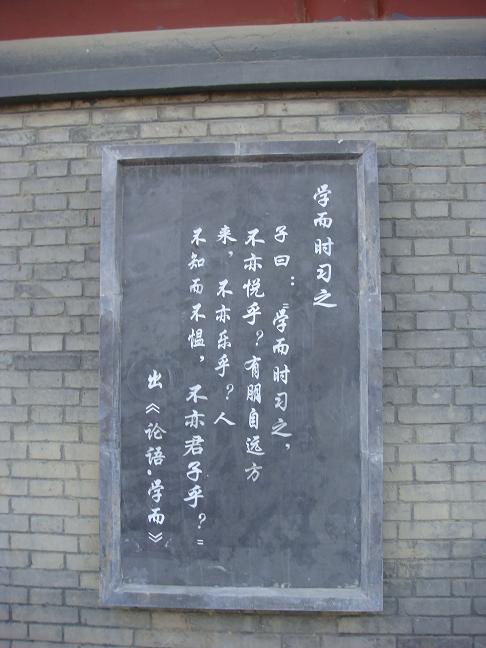 学而时习之
子曰："学而时习之，
不亦悦乎？有朋自远方
来，不亦乐乎？人
不知而不愠，不亦君子乎？"
出《论语·学而》